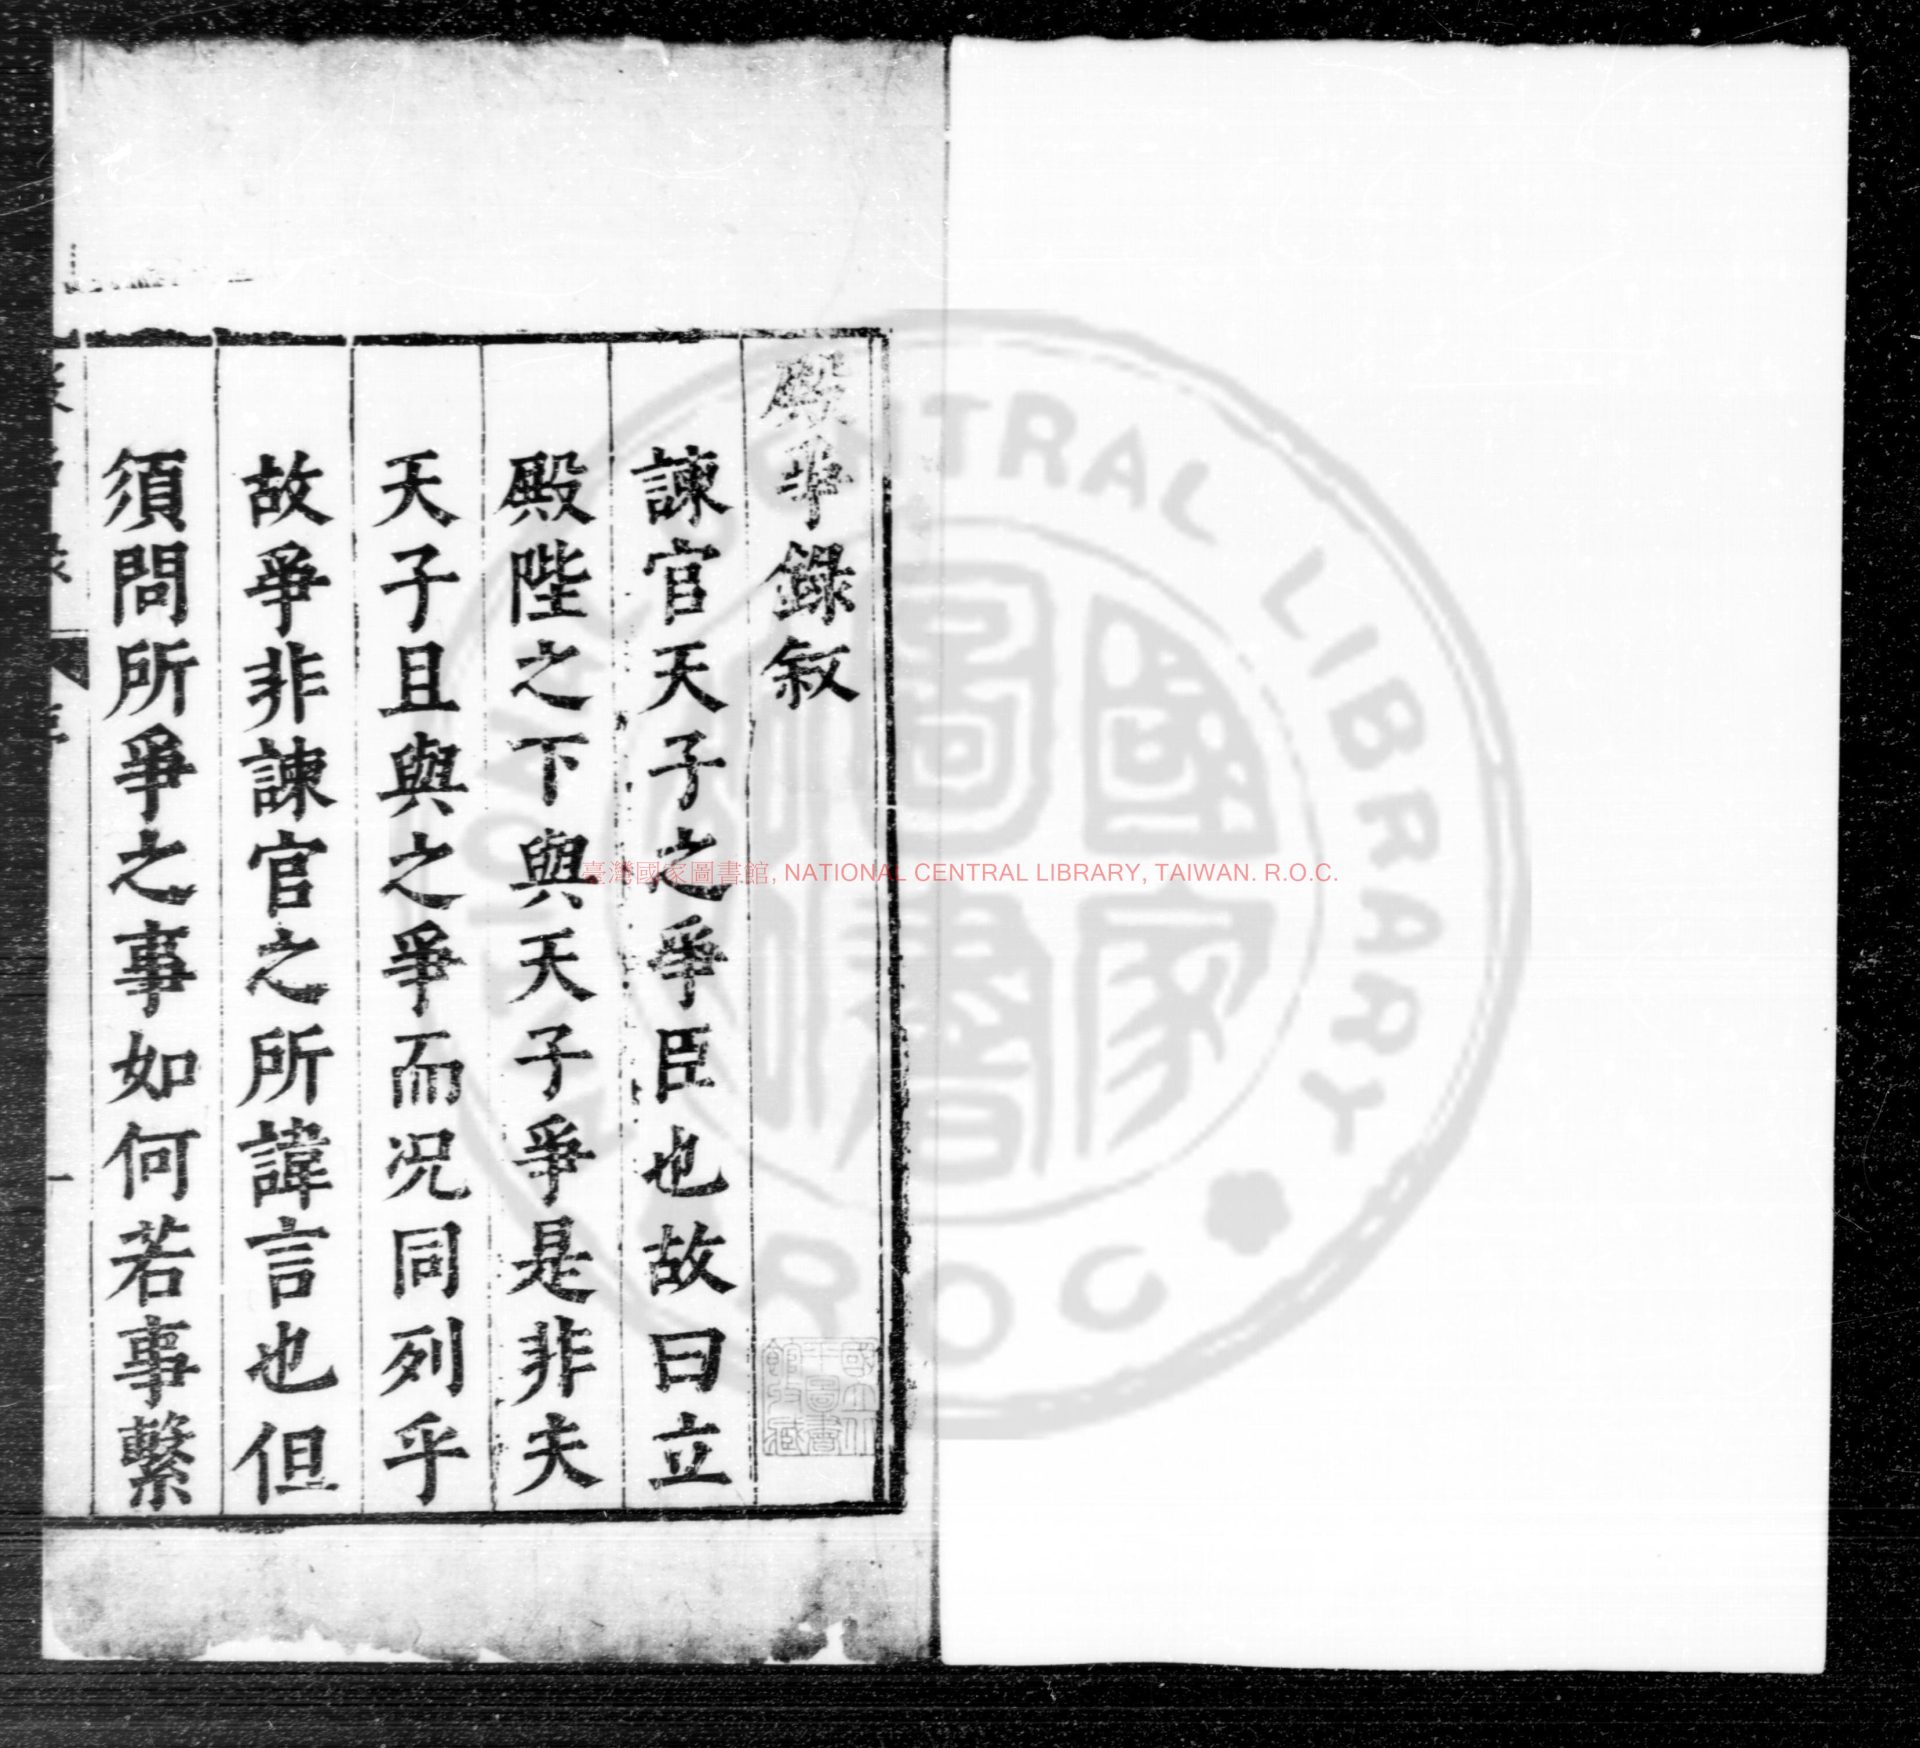 殿爭錄叙
諫官天子之爭臣也故曰立
殿陛之下與天子爭是非夫
天子且與之爭而况同列乎
故爭非諫官之所諱言也但
須問所爭之事如何若事繫
臺灣國家圖書館, NATIONAL CENTRAL LIBRARY, TAIWAN. R.O.C.
國家圖書館
NATIONAL CENTRAL LIBRARY
R.O.C.
國立中央圖書館收藏
序
一